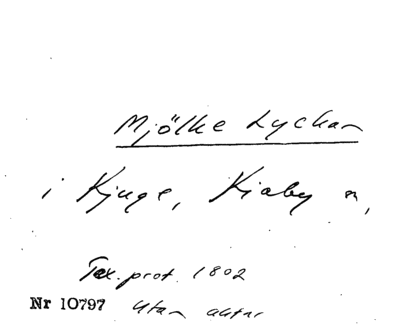 Mjölke Lyckan
i Kjuge, Kiaby n,
Tax. prot. 1802
Nr 10797 Utan aktnr